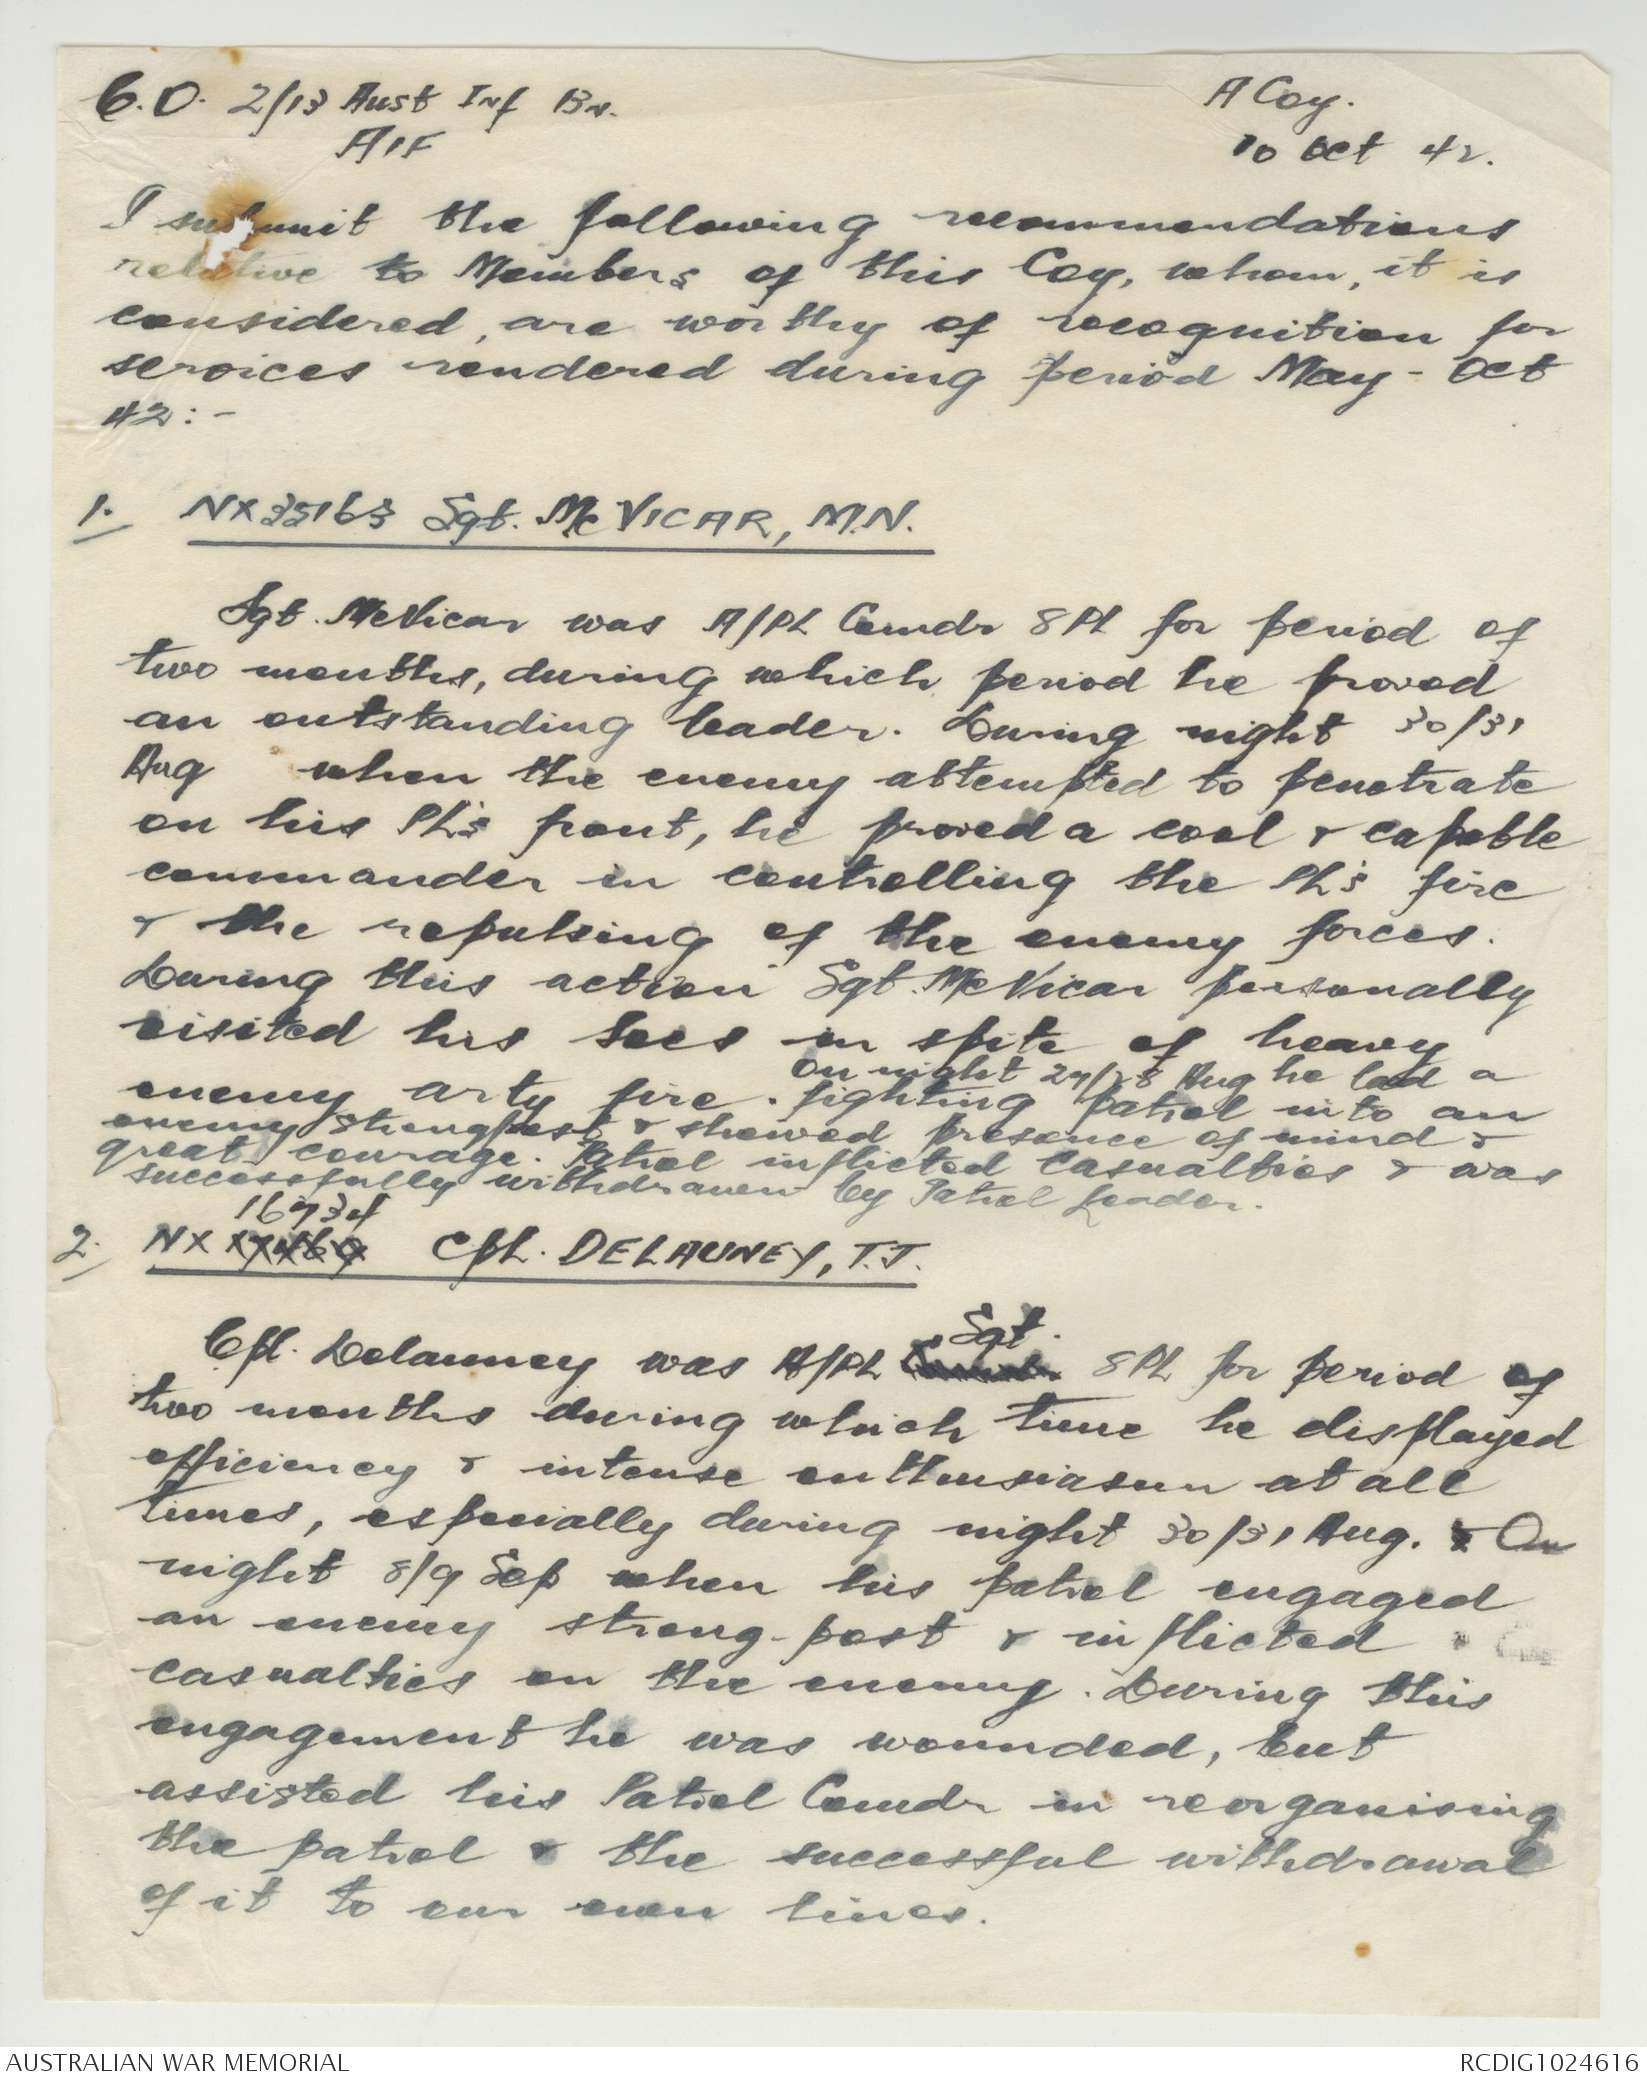 C.O. 2/13 Aust Inf Bn.
AIF
A Coy.
10 Oct 42.
I submit the following recommendations
relative to Members of this Coy, whom, it is
considered, are worthy of recognition for
services rendered during period May - Oct
42:-
1. NX35163 Sgt. McVICAR, M.N.
Sgt. McVicar was A/PL Comdr 8 PL for period of
two months, during which period he proved
an outstanding leader. During night 30/31
Aug when the enemy attempted to penetrate
on his PL's front, he proved a cool & capable
commander in controlling the PL's fire
& the repulsing of the enemy forces.
During this action Sgt. McVicar personally
visited his Secs in spite of heavy
enemy arty fire. On night 27/28 Aug he led a
fighting patrol into an
enemy strongpost & showed presence of mind &
great courage. Patrol inflicted casualties & was
successfully withdrawen by Patrol Leader.
16734
2. NX 17469 Cpl. DELAUNEY, T.J.
Sgt.
Cpl. Delauney was A/PL 8 PL for period of
two months during which time he displayed
efficiency & intense enthusiasum at all
times, especially during night 30/31 Aug. & On
night 8/9 Sep when his patrol engaged
an enemy strong-post & inflicted
casualties on the enemy. During this
engagement he was wounded, but
assisted his Patrol Comdr in reorganising
the patrol & the successful withdrawal
of it to our own lines.
AUSTRALIAN WAR MEMORIAL
RCDIG1024616